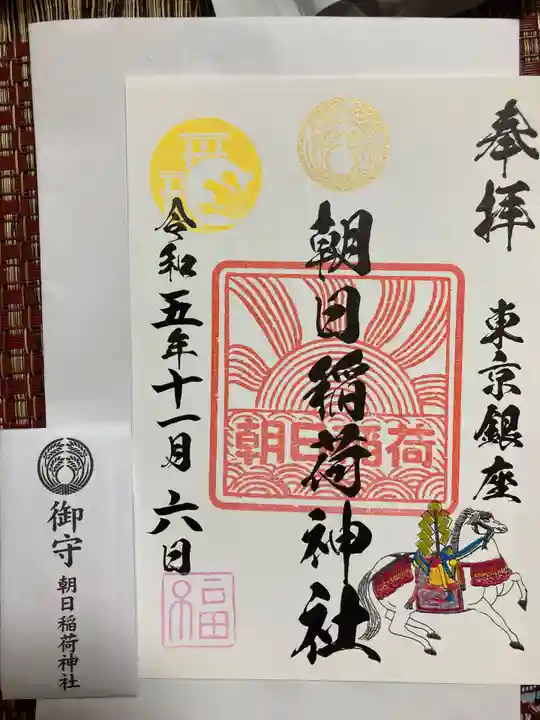 奉拝
東京銀座
朝日稲荷神社
朝日稲荷
令和五年十一月六日
福
御守
朝日稲荷神社